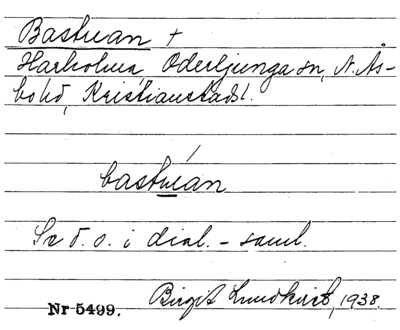 Bastuan +
Harholma, Oderljunga sn, N. Ås-
bo hd, Kristianstads l.
bastuan
Se d. o. i dial. - saml.
Nr 5499. Birgit Lundkvist, 1938.